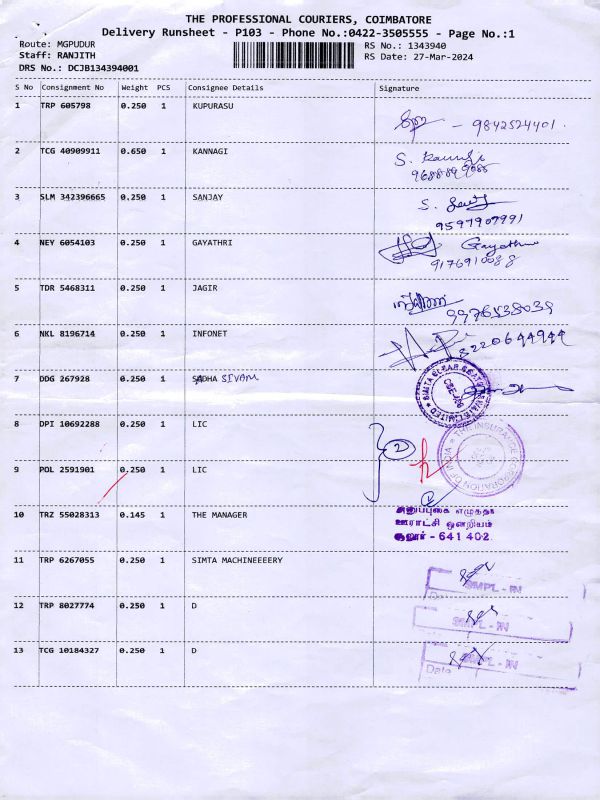 THE PROFESSIONAL COURIERS, COIMBATORE
Delivery Runsheet - P103 - Phone No.:0422-3505555 - Page No.:1
Route: MGPUDUR RS No.: 1343940
Staff: RANJITH RS Date: 27-Mar-2024
DRS No.: DCJB134394001
S No Consignment No Weight PCS Consignee Details Signature
1 TRP 605798 0.250 1 KUPURASU
- 9842524401.
2 TCG 40909911 0.650 1 KANNAGI
S. Kannagi
3 SLM 342396665 0.250 1 SANJAY
S.
9597907991
4 NEY 6054103 0.250 1 GAYATHRI
Gayathri
9176910088
5 TDR 5468311 0.250 1 JAGIR
9976538039
6 NKL 8196714 0.250 1 INFONET
8220644944
7 DDG 267928 0.250 1 SADHA SIVAM
8 DPI 10692288 0.250 1 LIC
2
THE INSURANCE CORPORATION OF INDIA
9 POL 2591901 0.250 1 LIC
10 TRZ 55028313 0.145 1 THE MANAGER
ஊராட்சி ஒன்றியம்
சூலூர் - 641 402.
11 TRP 6267055 0.250 1 SIMTA MACHINEEEERY
SMPL - IN
12 TRP 8027774 0.250 1 D
SMPL - IN
13 TCG 10184327 0.250 1 D
SMPL - IN
Date